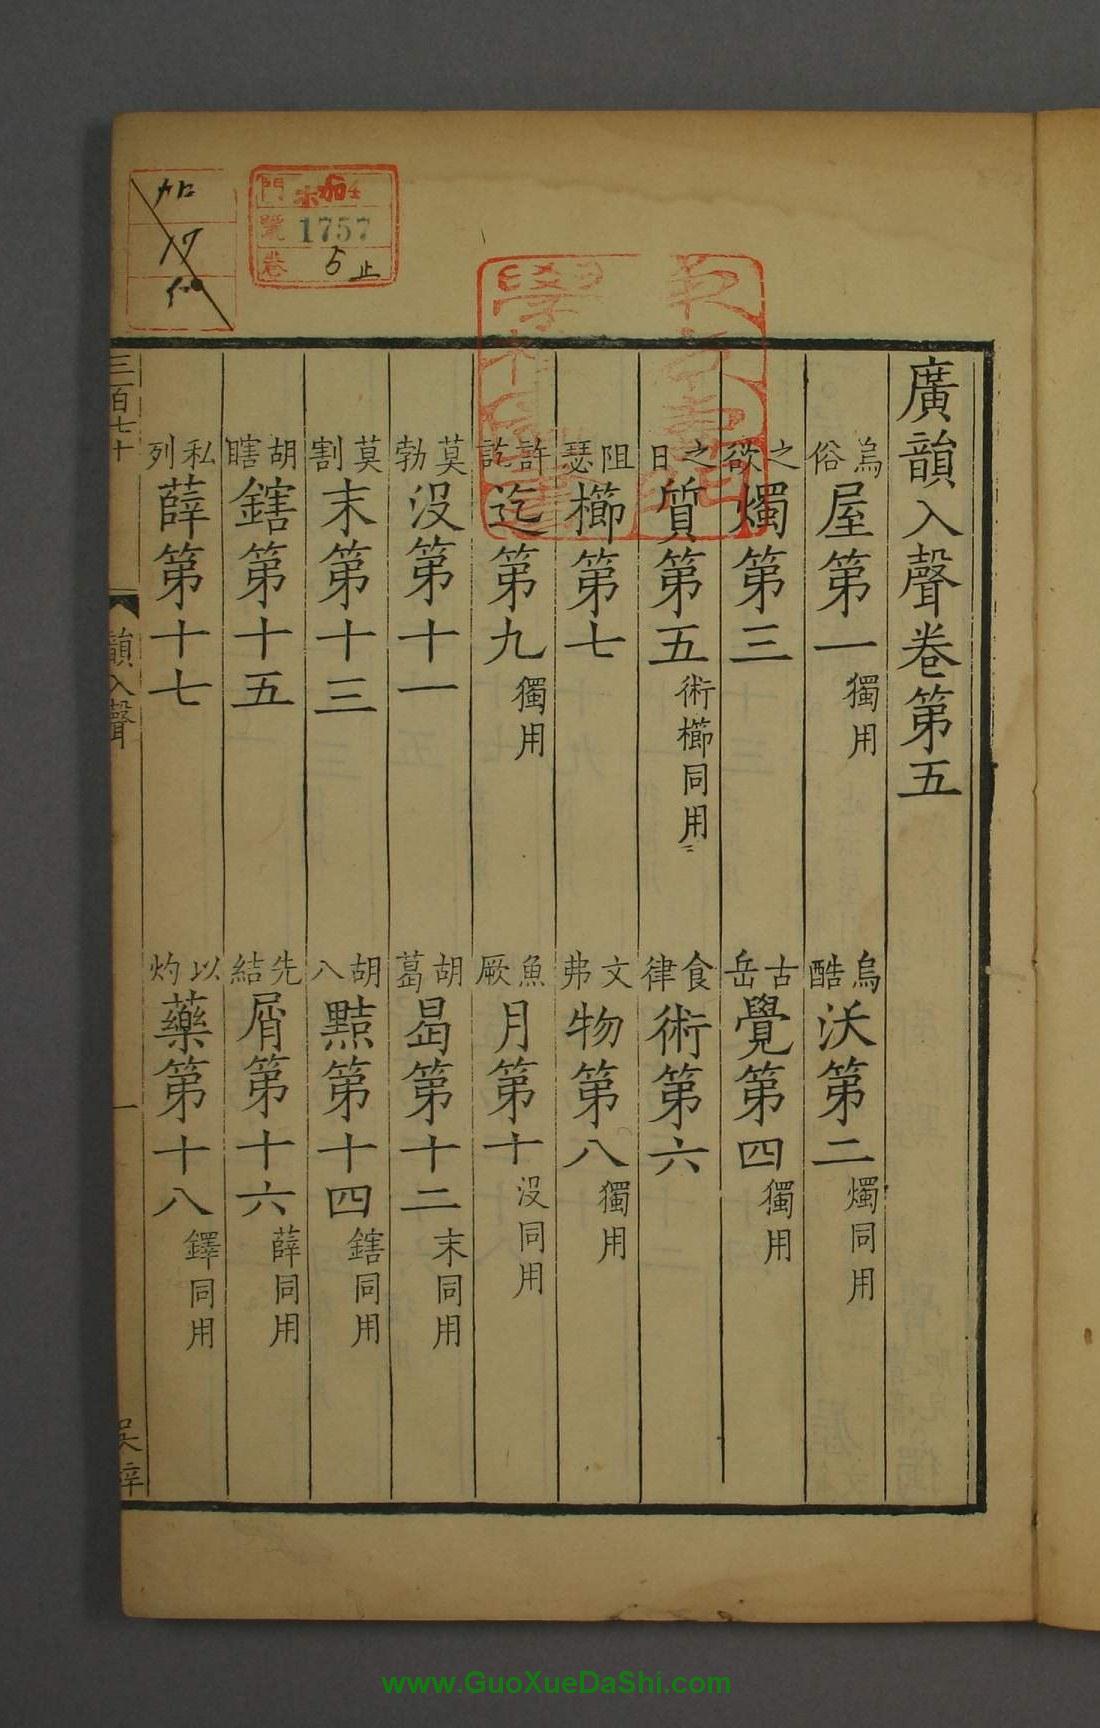 廣韻入聲卷第五
烏俗屋第一獨用
烏酷沃第二燭同用
之欲燭第三
古岳覺第四獨用
之日質第五術櫛同用
食律術第六
阻瑟櫛第七
文弗物第八獨用
許訖迄第九獨用
魚厥月第十沒同用
莫勃沒第十一
胡葛曷第十二末同用
莫割末第十三
胡八黠第十四鎋同用
胡瞎鎋第十五
先結屑第十六薛同用
私列薛第十七
以灼藥第十八鐸同用
三百七十
韻入聲
一
門
號 1757
卷 5止
www.GuoXueDaShi.com